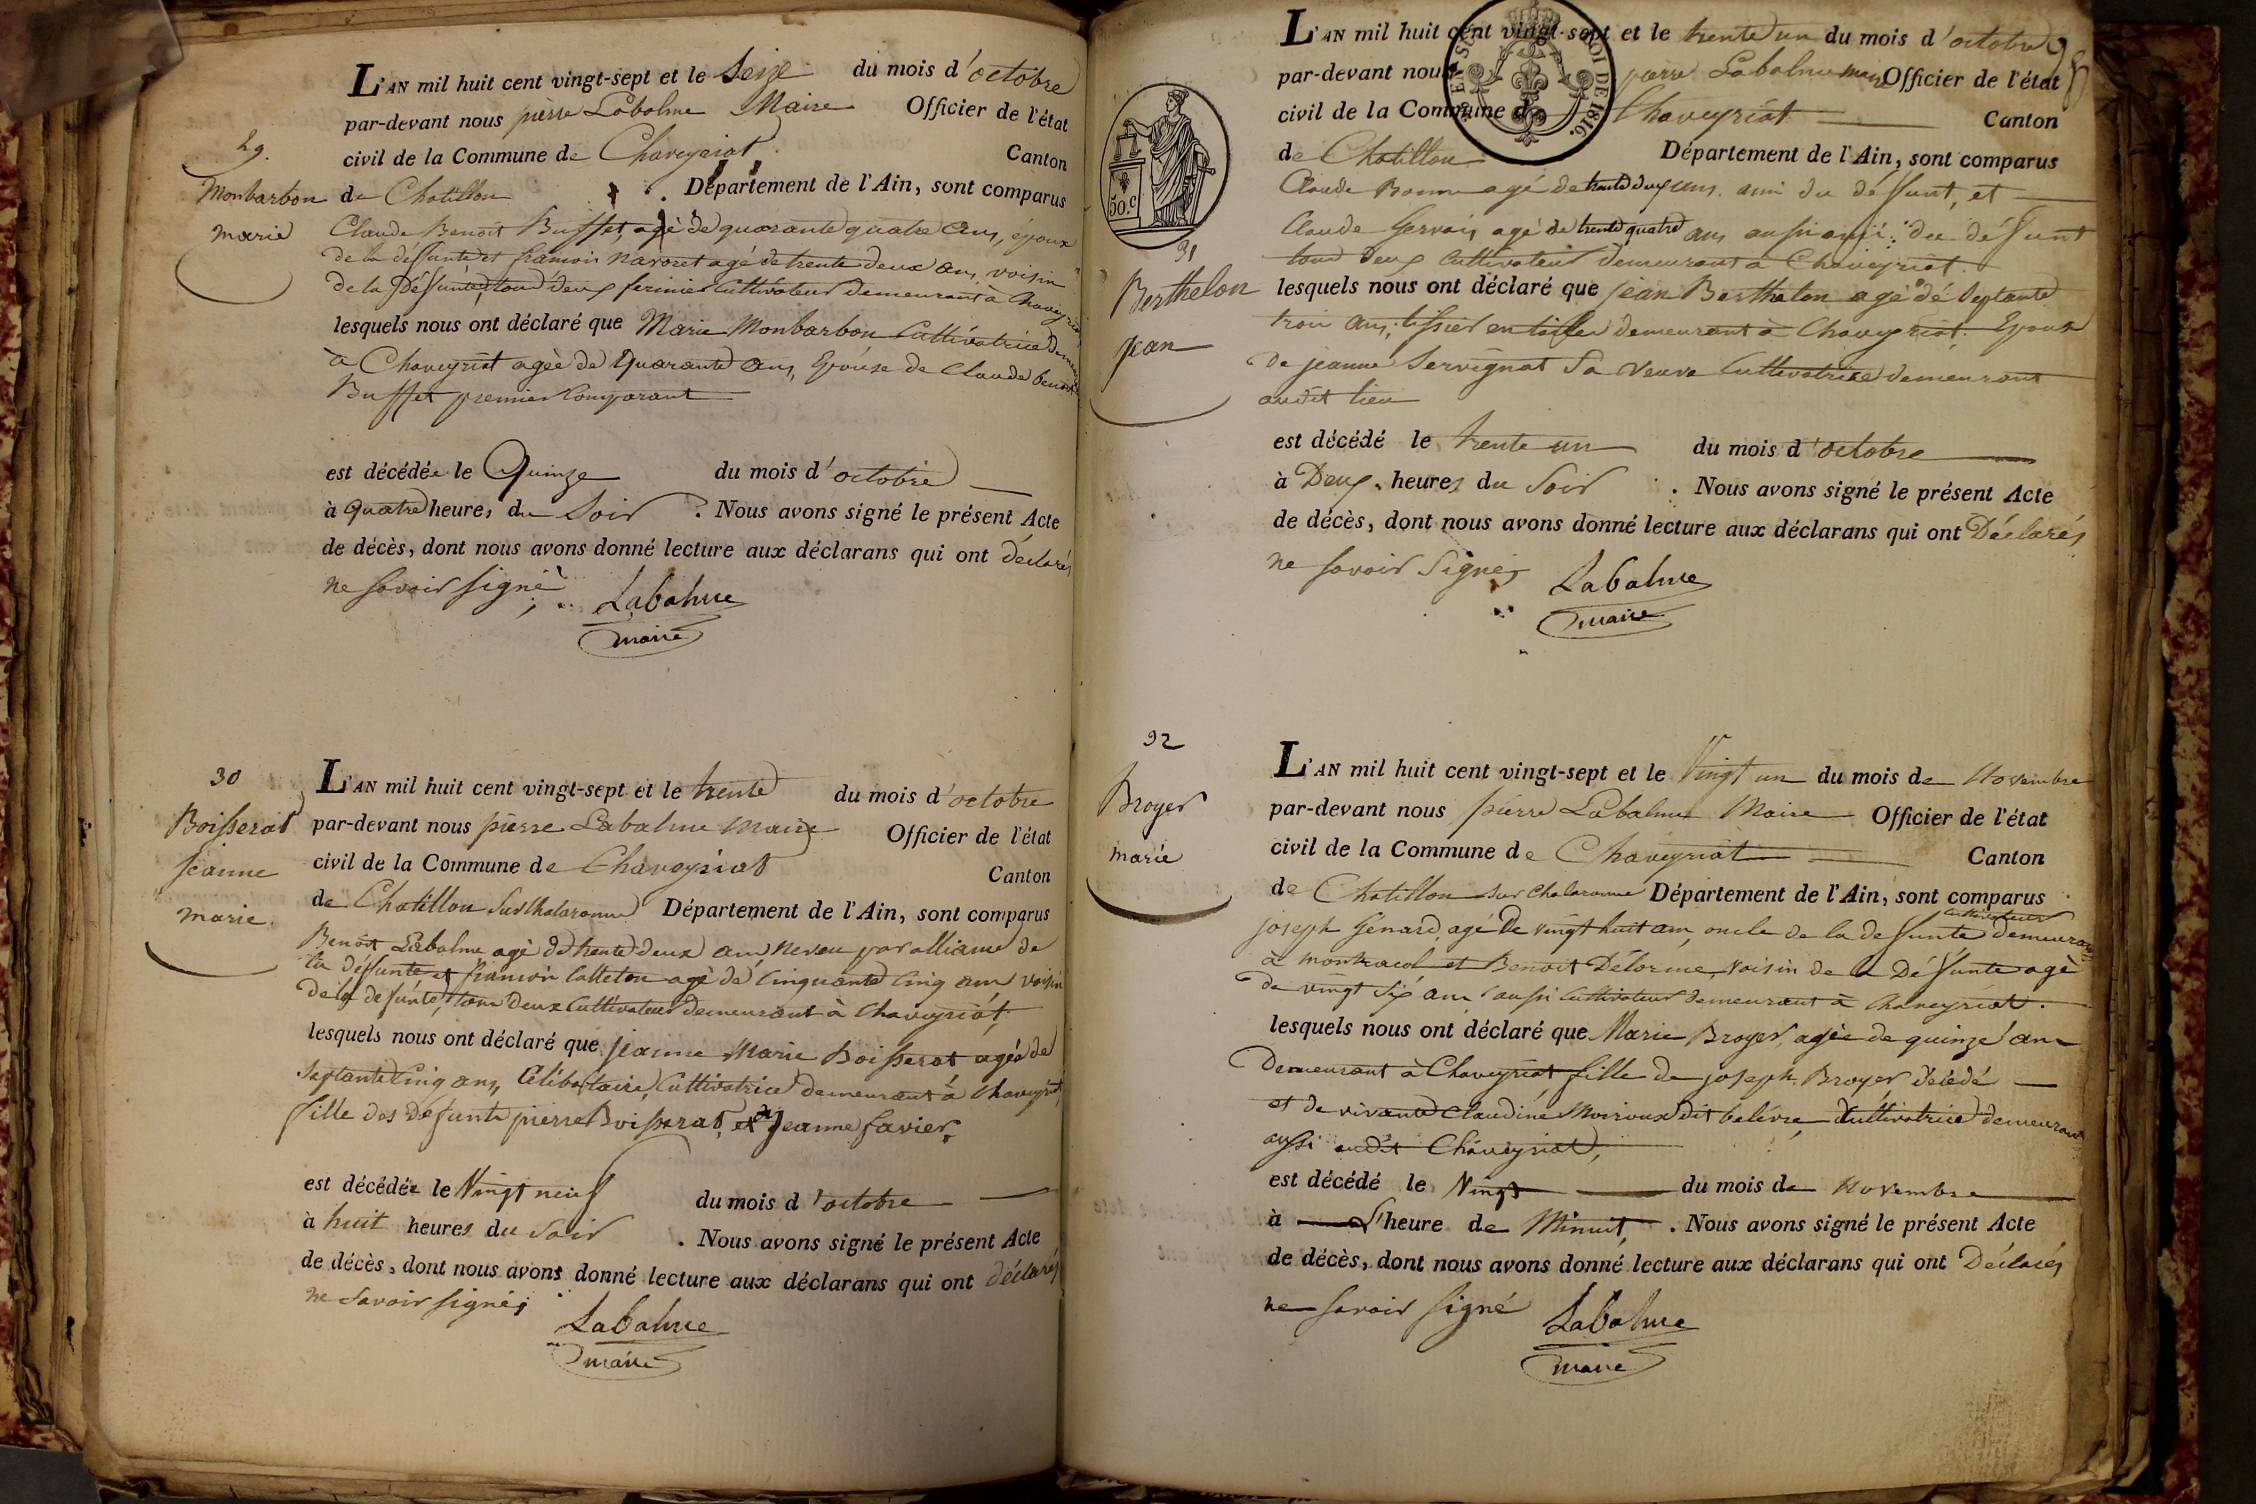 29.
Monbarbon
marie
L'AN mil huit cent vingt-sept et le Seize du mois d'octobre
par-devant nous pierre Labalme Maire Officier de l'état
civil de la Commune de Chaveyriat Canton
de Chatillon . Département de l'Ain, sont comparus
Claude Benoit Buffet, agé de quarante quatre ans, époux
de la déffunte et francois navoret agé de trente deux ans, voisin
de la Déffunte, tous deux fermier Cultivateur demeurant à Chaveyriat
lesquels nous ont déclaré que Marie Monbarbon Cultivatrice demeurant
à Chaveyriat agée de Quarante ans, Epouse de Claude benoit
Buffet premier Comparant
est décédée le Quinze du mois d'octobre
à quatre heures du Soir . Nous avons signé le présent Acte
de décès, dont nous avons donné lecture aux déclarans qui ont déclarés
ne savoir signé
Labalme
maire
30
Boisserat
jeanne
marie.
L'AN mil huit cent vingt-sept et le trente du mois d'octobre
par-devant nous pierre Labalme Maire Officier de l'état
civil de la Commune de Chaveyriat Canton
de Chatillon Sur Chalaronne Département de l'Ain, sont comparus
Benoit Labalme agé de trente deux ans neveu par alliance de
la déffunte et francois Catteton agé de cinquante cinq ans voisin
de la defunte, tous Deux Cultivateur demeurant à Chaveyriat,
lesquels nous ont déclaré que jeanne Marie Boisserat agée de
Septante Cinq ans, Célibataire, Cultivatrice demeurant à Chaveyriat,
fille des Defunts pierre Boisserat, et de Jeanne favier,
est décédée le Vingt neuf du mois d'octobre
à huit heures du Soir . Nous avons signé le présent Acte
de décès, dont nous avons donné lecture aux déclarans qui ont déclarés
ne Savoir signés
Labalme
maire
50.c
EN SUS
LOI DE 1816.
31
Berthelon
jean
L'AN mil huit cent vingt-sept et le trente un du mois d'octobre
par-devant nous pierre Labalme maire Officier de l'état
civil de la Commune de Chaveyriat Canton
de Chatillon Département de l'Ain, sont comparus
Claude Bonne agé de trente deux ans. ami du déffunt, et
Claude Gervais agé de trente quatre ans aussi ami du déffunt
tous Deux Cultivateur demeurant à Chaveyriat.
lesquels nous ont déclaré que jean Berthelon agé dé Septante
trois ans, tissier en toilles demeurant à Chaveyriat. Epoux
de jeanne Servignat Sa veuve Cultivatrice demeurant
audit lieu
est décédé le trente un du mois d'octobre
à Deux heures du Soir . Nous avons signé le présent Acte
de décès, dont nous avons donné lecture aux déclarans qui ont Déclarés
ne savoir Signés
Labalme
maire
32
Broyer
marie
L'AN mil huit cent vingt-sept et le Vingt un du mois de Novembre
par-devant nous pierre Labalme Maire Officier de l'état
civil de la Commune de Chaveyriat Canton
de Chatillon sur Chalaronne Département de l'Ain, sont comparus
joseph Génard, agé De vingt huit ans, oncle de la deffunte cultivateur demeurant
a montracol et Benoit Délorme, voisin de la Déffunte agé
de vingt Six ans aussi Cultivateur demeurant à Chaveyriat.
lesquels nous ont déclaré que Marie Broyer, agée de quinze ans
Demeurant à Chaveyriat fille de joseph Broyer décédé
et de vivante Claudine Moiroux dit belévre, Cultivatrice demeurant
aussi audit Chaveyriat,
est décédé le Vingt du mois de Novembre
à L'heure de Minuit, . Nous avons signé le présent Acte
de décès, dont nous avons donné lecture aux déclarans qui ont Déclarés
ne savoir signé
Labalme
maire